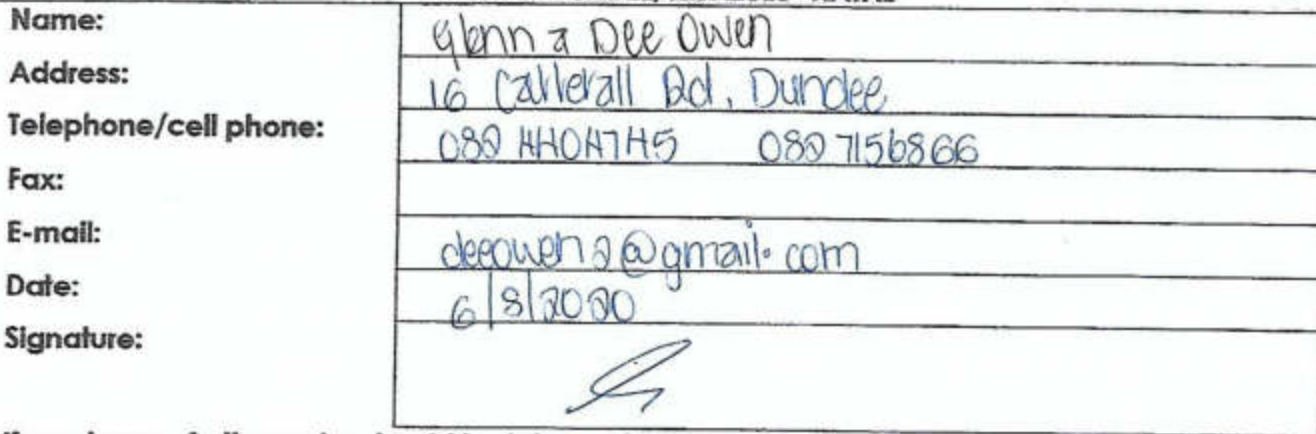 Name: Glenn & Dee Owen
Address: 16 Rd, Dundee
Telephone/cell phone: 082 4404745 082 7156866
Fax:
E-mail: deeowen2@gmail.com
Date: 6/8/2020
Signature: